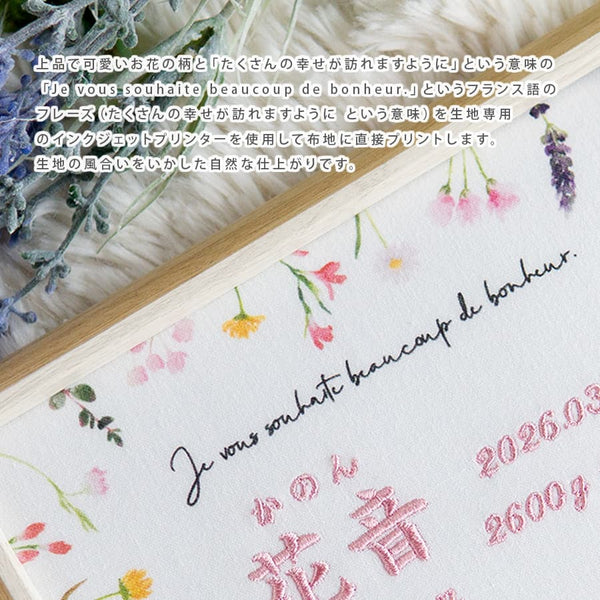 上品で可愛いお花の柄と「たくさんの幸せが訪れますように」という意味の
「Je vous souhaite beaucoup de bonheur.」というフランス語の
フレーズ（たくさんの幸せが訪れますように という意味）を生地専用
のインクジェットプリンターを使用して布地に直接プリントします。
生地の風合いをいかした自然な仕上がりです。
Je vous souhaite beaucoup de bonheur.
かのん
花音
2026.03
2600g